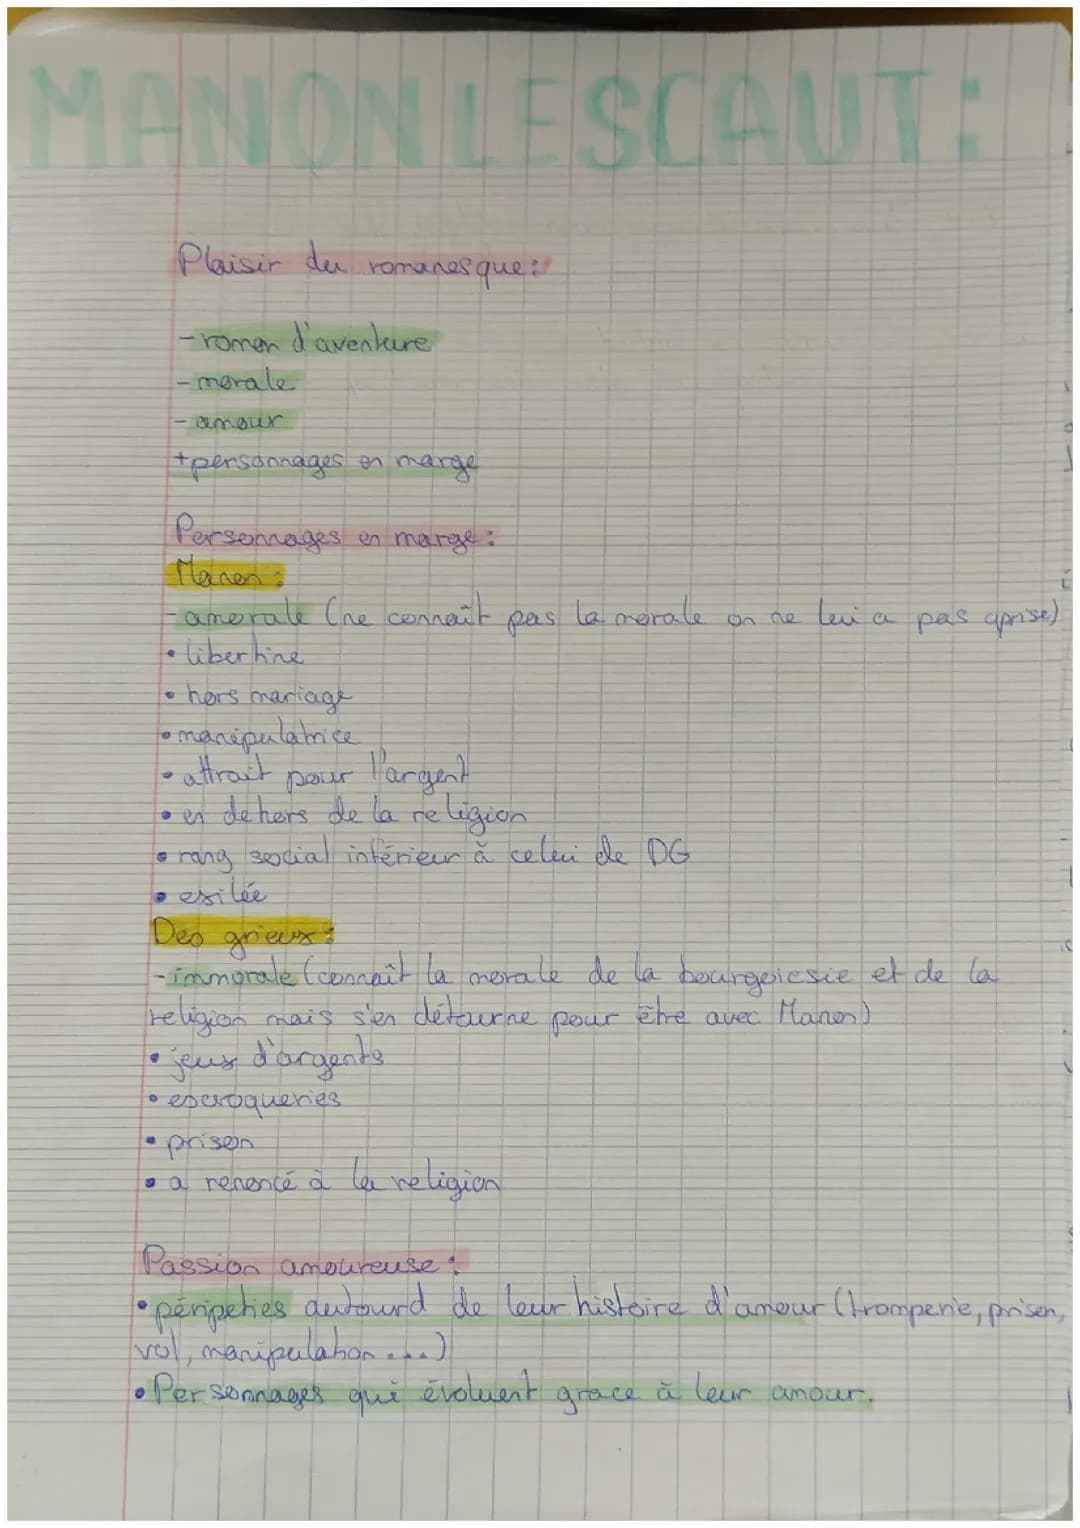 MANON LESCAUT:
Plaisir du romanesque:
-roman d'aventure
-morale
-amour
+personnages en marge
Personnages en marge:
Manon:
-amorale (ne connaît pas la morale on ne lui a pas aprise)
• libertine
• hors mariage
• manipulatrice
• attrait pour l'argent
• en dehors de la religion
• rang social inférieur à celui de DG
• exilée
Des grieux:
-immorale (connaît la morale de la bourgeoiesie et de la
religion mais s'en détourne pour être avec Manon)
• jeux d'argents
• escroqueries
• prison
• a renoncé à la religion
Passion amoureuse:
• péripeties autourd de leur histoire d'amour (tromperie, prison,
vol, manipulation...)
• Personnages qui évoluent grace à leur amour.